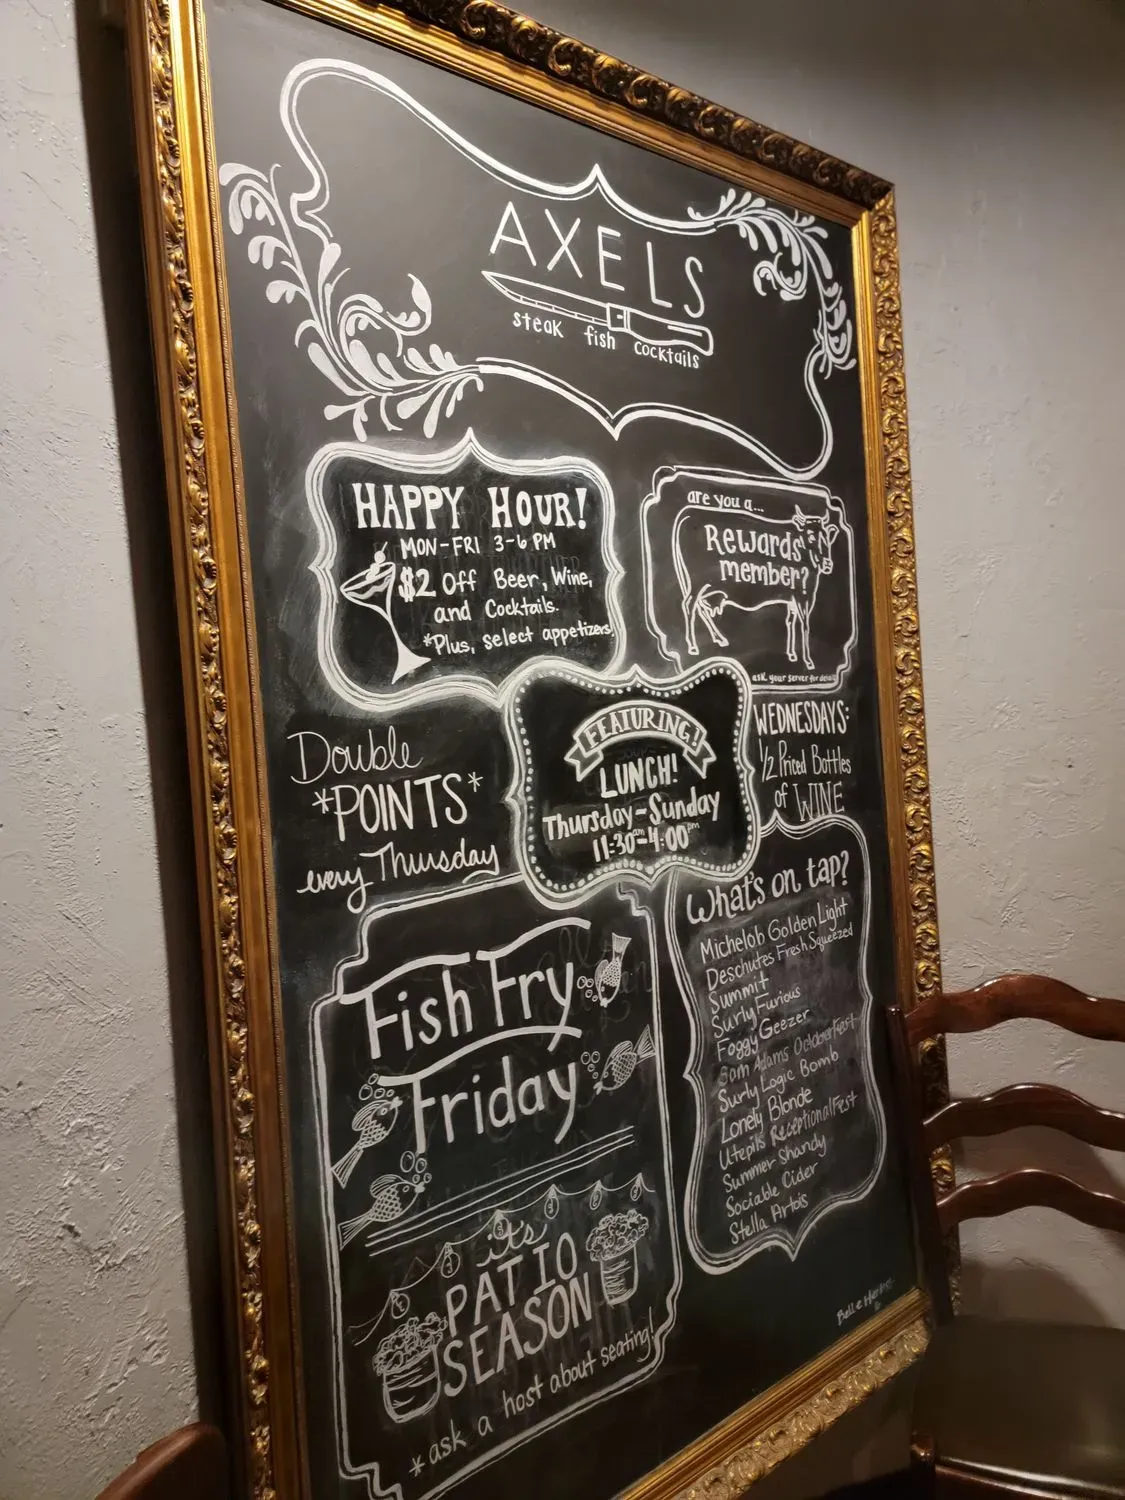 AXELS
steak fish cocktails
HAPPY HOUR!
MON-FRI 3-6 PM
$2 Off Beer, Wine,
and Cocktails.
*Plus, select appetizers
are you a...
Rewards
member?
ask your server for details
FEATURING!
LUNCH!
Thursday-Sunday
11:30am-4:00pm
Double
*POINTS*
every Thursday
WEDNESDAYS:
1/2 Priced Bottles
of WINE
Fish Fry
Friday
it's
PATIO
SEASON
*ask a host about seating!
What's on tap?
Michelob Golden Light
Deschutes Fresh Squeezed
Summit
Surly Furious
Foggy Geezer
Sam Adams OctoberFest
Surly Logic Bomb
Lonely Blonde
Utepils ReceptionalFest
Summer Shandy
Sociable Cider
Stella Artois
Belle